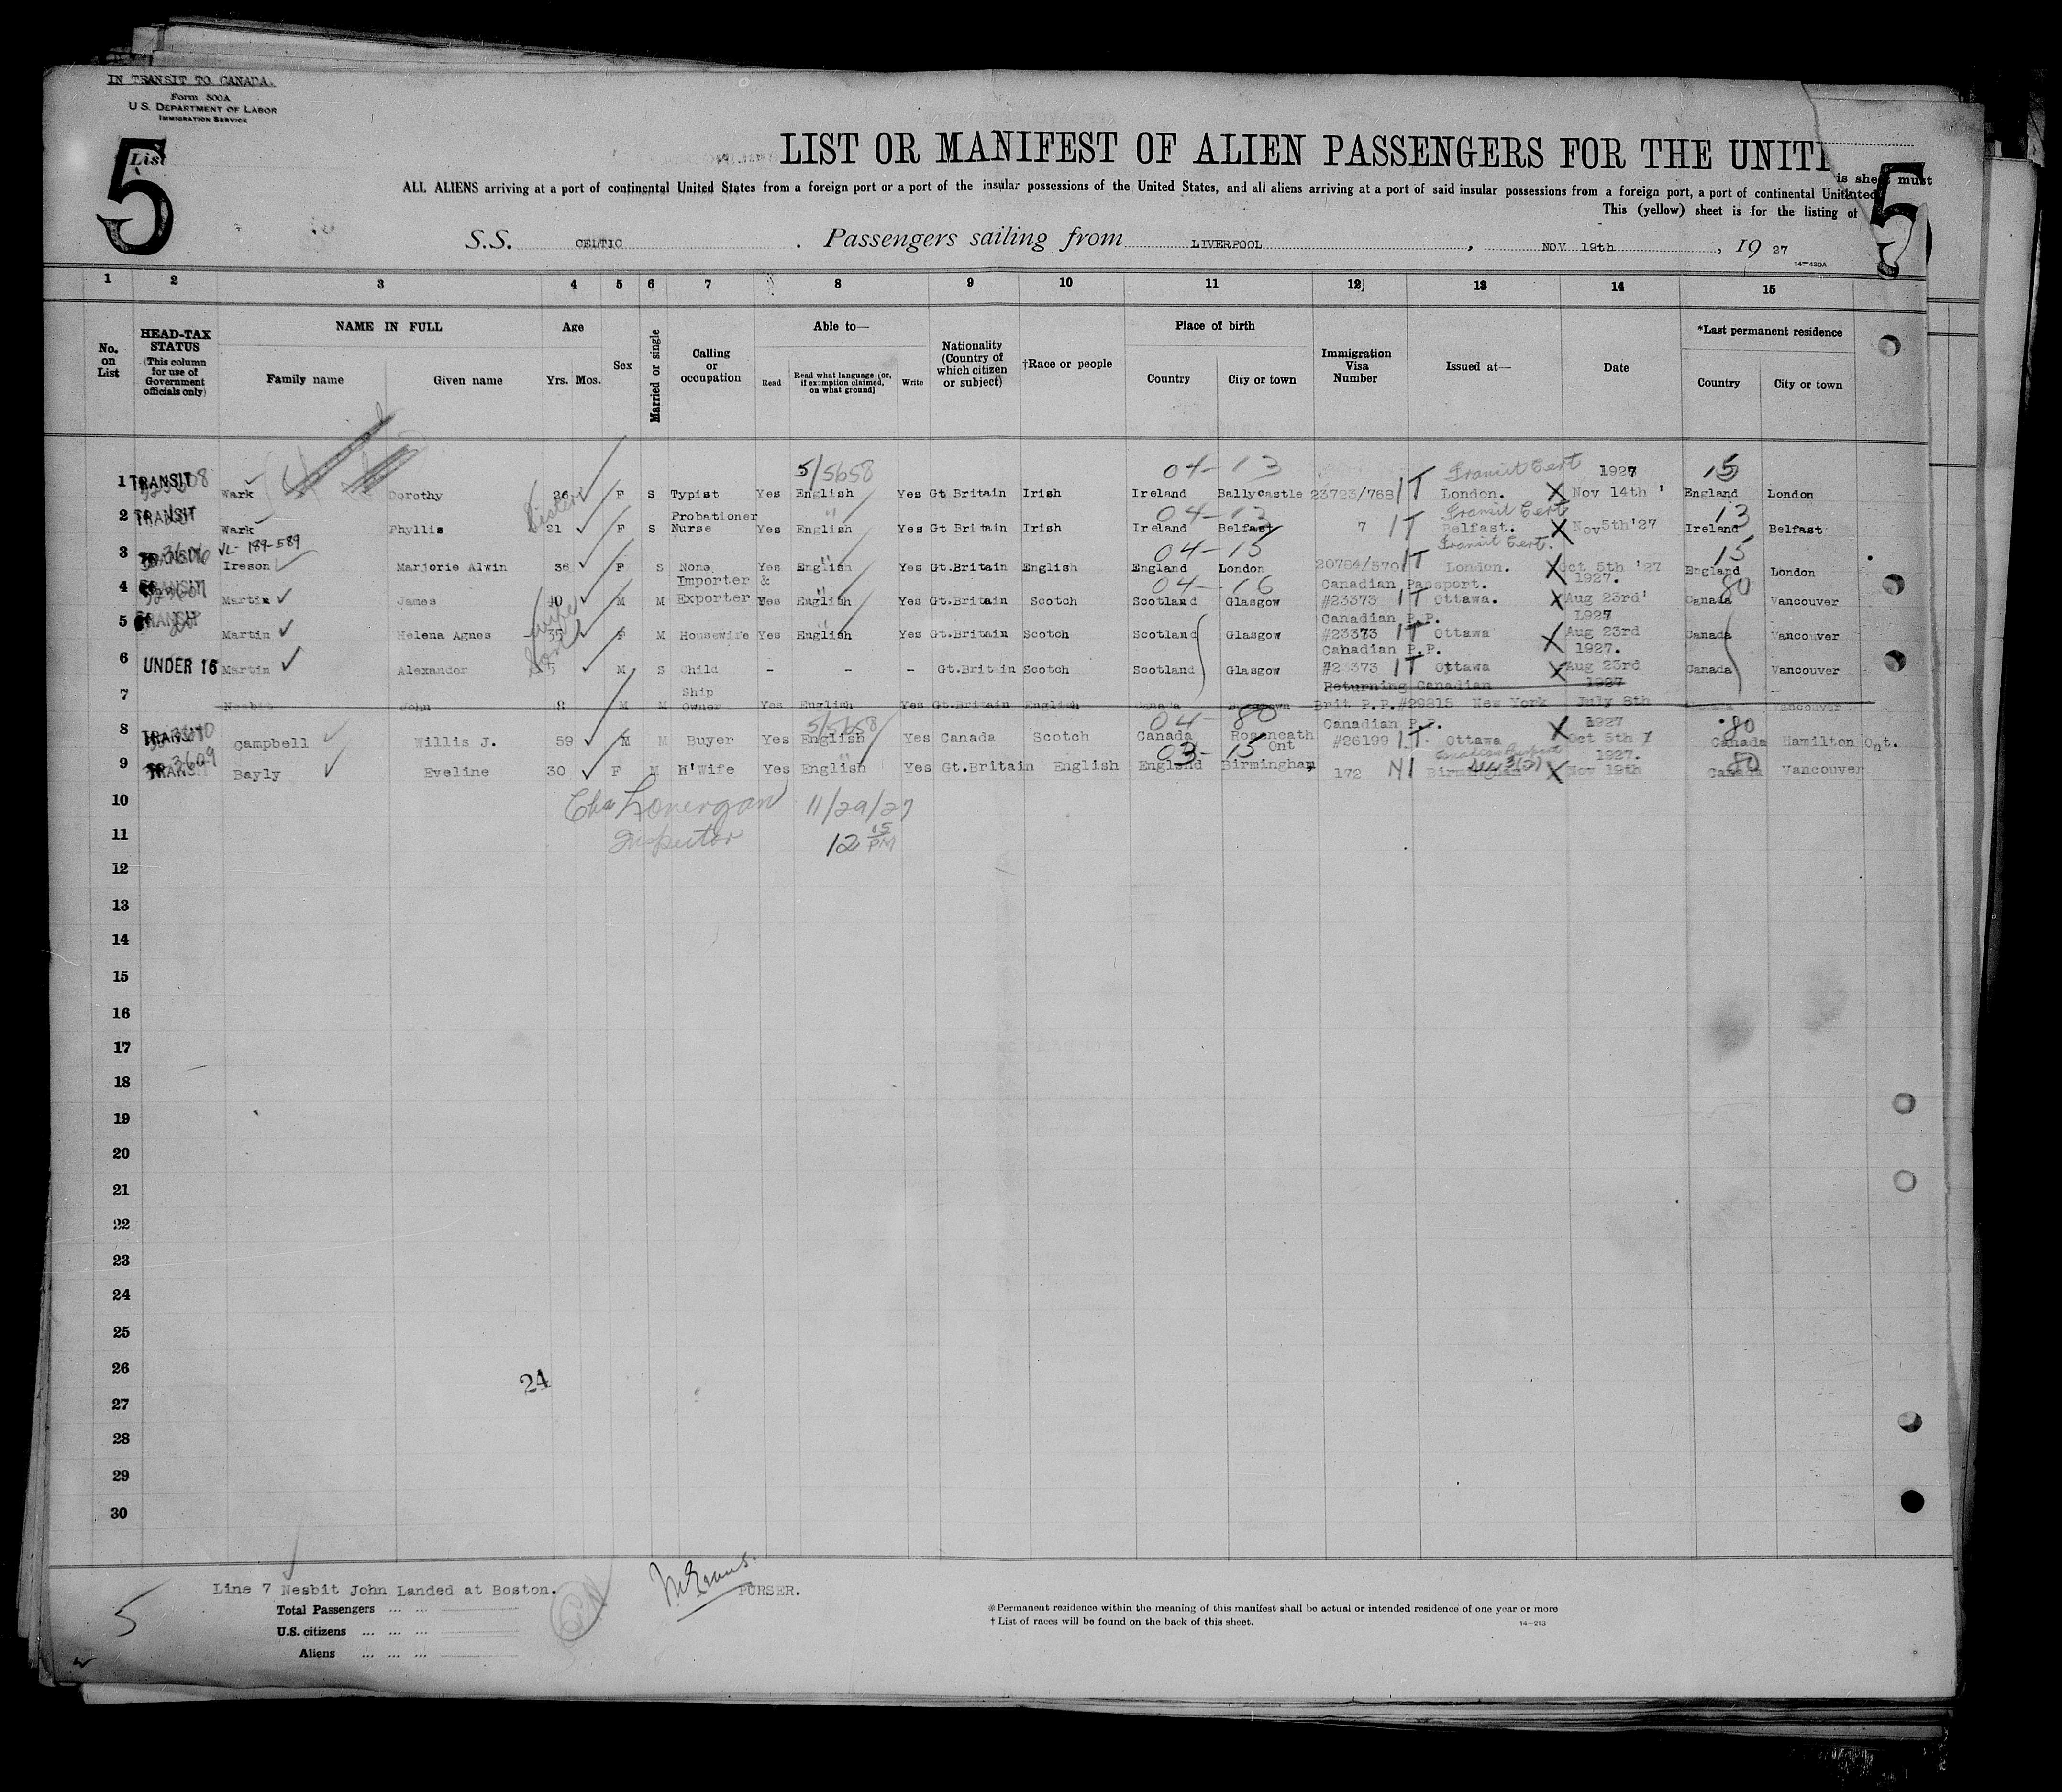 IN TRANSIT TO CANADA.
Form 500A
U.S. DEPARTMENT OF LABOR
IMMIGRATION SERVICE
5 List 5
LIST OR MANIFEST OF ALIEN PASSENGERS FOR THE UNIT
is sheet must
ALL ALIENS arriving at a port of continental United States from a foreign port or a port of the insular possessions of the United States, and all aliens arriving at a port of said insular possessions from a foreign port, a port of continental United
This (yellow) sheet is for the listing of
S.S. CELTIC . Passengers sailing from LIVERPOOL , NOV 19th , 19 27
14—430A
1 2 3 4 5 6 7 8 9 10 11 12 13 14 15
No. on List
HEAD-TAX STATUS (This column for use of Government officials only)
NAME IN FULL Family name Given name
Age Yrs. Mos.
Sex
Married or single
Calling or occupation
Able to— Read Read what language (or, if exemption claimed, on what ground) Write
Nationality (Country of which citizen or subject)
†Race or people
Place of birth Country City or town
Immigration Visa Number
Issued at—
Date
*Last permanent residence Country City or town
5/5658 04-13 Transit Cert 1927 15
1 TRANSIT Wark Dorothy 26 F S Typist Yes English Yes Gt Britain Irish Ireland Ballycastle 23723/768 1T London. X Nov 14th ' England London
Sister Probationer 04-13 Transit Cert 13
2 TRANSIT Wark Phyllis 21 F S Nurse Yes English Yes Gt Britain Irish Ireland Belfast 7 1T Belfast. X Nov 5th '27 Ireland Belfast
VL-189-589 04-15 Transit Cert. 15
3 TRANSIT Ireson Marjorie Alwin 36 F S None Yes English Yes Gt.Britain English England London 20784/570 1T London. X Oct 5th '27 England London
Importer & 04-16 Canadian Passport. 1927. 80
4 TRANSIT Martin James 40 M M Exporter Yes English Yes Gt.Britain Scotch Scotland Glasgow #23373 1T Ottawa. X Aug 23rd' Canada Vancouver
wife Canadian P.P. 1927
5 TRANSIT Martin Helena Agnes 35 F M Housewife Yes English Yes Gt.Britain Scotch Scotland Glasgow #23373 1T Ottawa X Aug 23rd Canada Vancouver
son Canadian P.P. 1927.
6 UNDER 16 Martin Alexander 5 M S Child - - - Gt.Britain Scotch Scotland Glasgow #23373 1T Ottawa X Aug 23rd Canada Vancouver
Ship Returning Canadian 1927
7 Nesbit John M M Owner Yes English Yes Gt.Britain English Canada Brit P.P.#29815 New York July 8th Canada Vancouver
5/5658 04-80 Canadian P.P. 1927 80
8 TRANSIT Campbell Willis J. 59 M M Buyer Yes English Yes Canada Scotch Canada Roseneath Ont #26199 1T. Ottawa X Oct 5th Canada Hamilton Ont.
03-15 1927. 80
9 TRANSIT Bayly Eveline 30 F M H'Wife Yes English Yes Gt.Britain English England Birmingham 172 Birmingham X Nov 19th Canada Vancouver
10 Chas Lonergan 11/29/27
11 Inspector 12 15 PM
12
13
14
15
16
17
18
19
20
21
22
23
24
25
26
24
27
28
29
30
Line 7 Nesbit John Landed at Boston. PURSER.
5 Total Passengers ... ...
U.S. citizens ... ... ...
Aliens ... ... ...
*Permanent residence within the meaning of this manifest shall be actual or intended residence of one year or more
† List of races will be found on the back of this sheet. 14—213